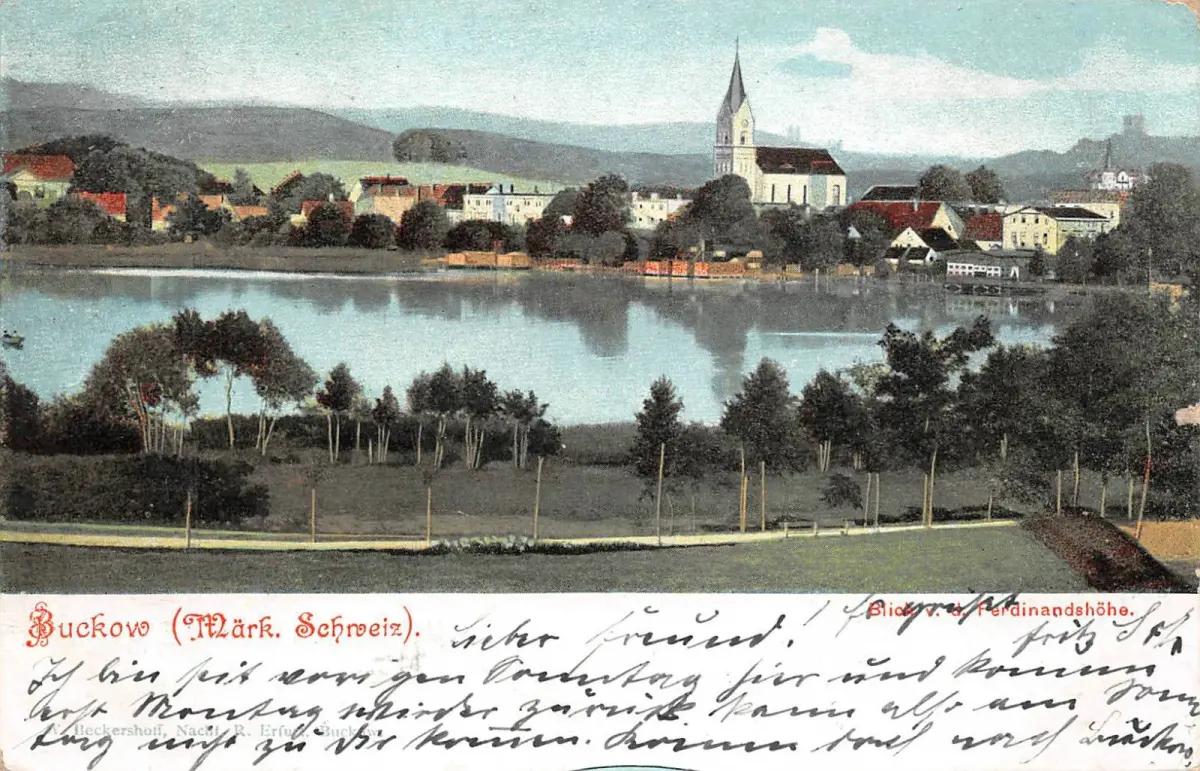 Buckow (Märk. Schweiz).
Blick v. d. Ferdinandshöhe.
Lieber Freund!
Ich bin seit vorigen Sonntag hier und komme
erst Montag wieder zurück kann also am Sonn
tag nicht zu Dir kommen. Komm doch nach Buckow,
Beckershoff, Nachf. R. Erfurt, Buckow